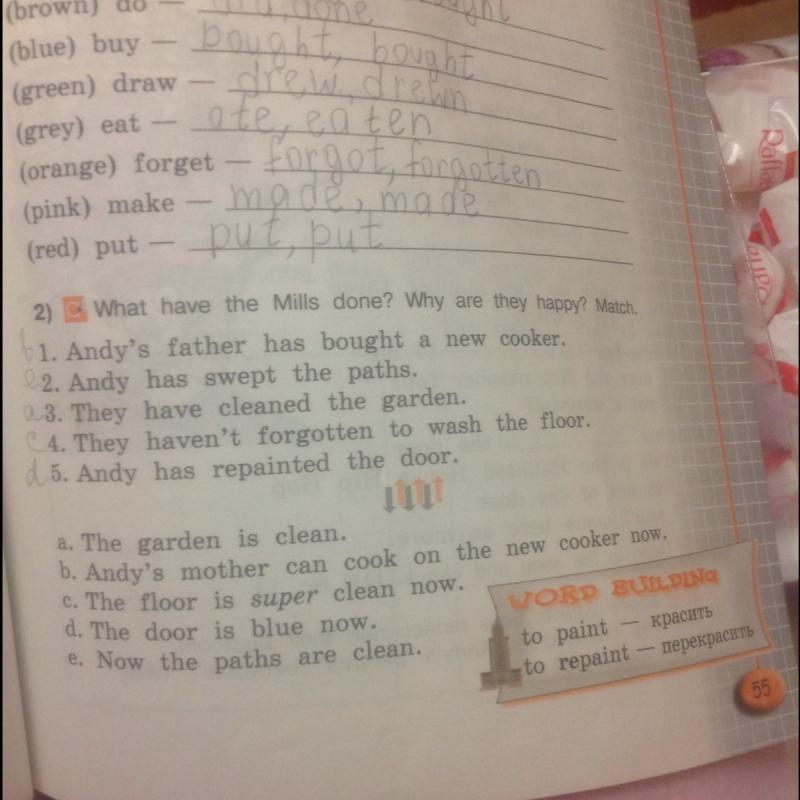 (brown) do — did, done
(blue) buy — bought, bought
(green) draw — drew, drewn
(grey) eat — ate, eaten
(orange) forget — forgot, forgotten
(pink) make — made, made
(red) put — put, put
2) C What have the Mills done? Why are they happy? Match.
b 1. Andy's father has bought a new cooker.
e 2. Andy has swept the paths.
a 3. They have cleaned the garden.
c 4. They haven't forgotten to wash the floor.
d 5. Andy has repainted the door.
a. The garden is clean.
b. Andy's mother can cook on the new cooker now.
c. The floor is super clean now.
d. The door is blue now.
e. Now the paths are clean.
WORD BUILDING
to paint — красить
to repaint — перекрасить
55